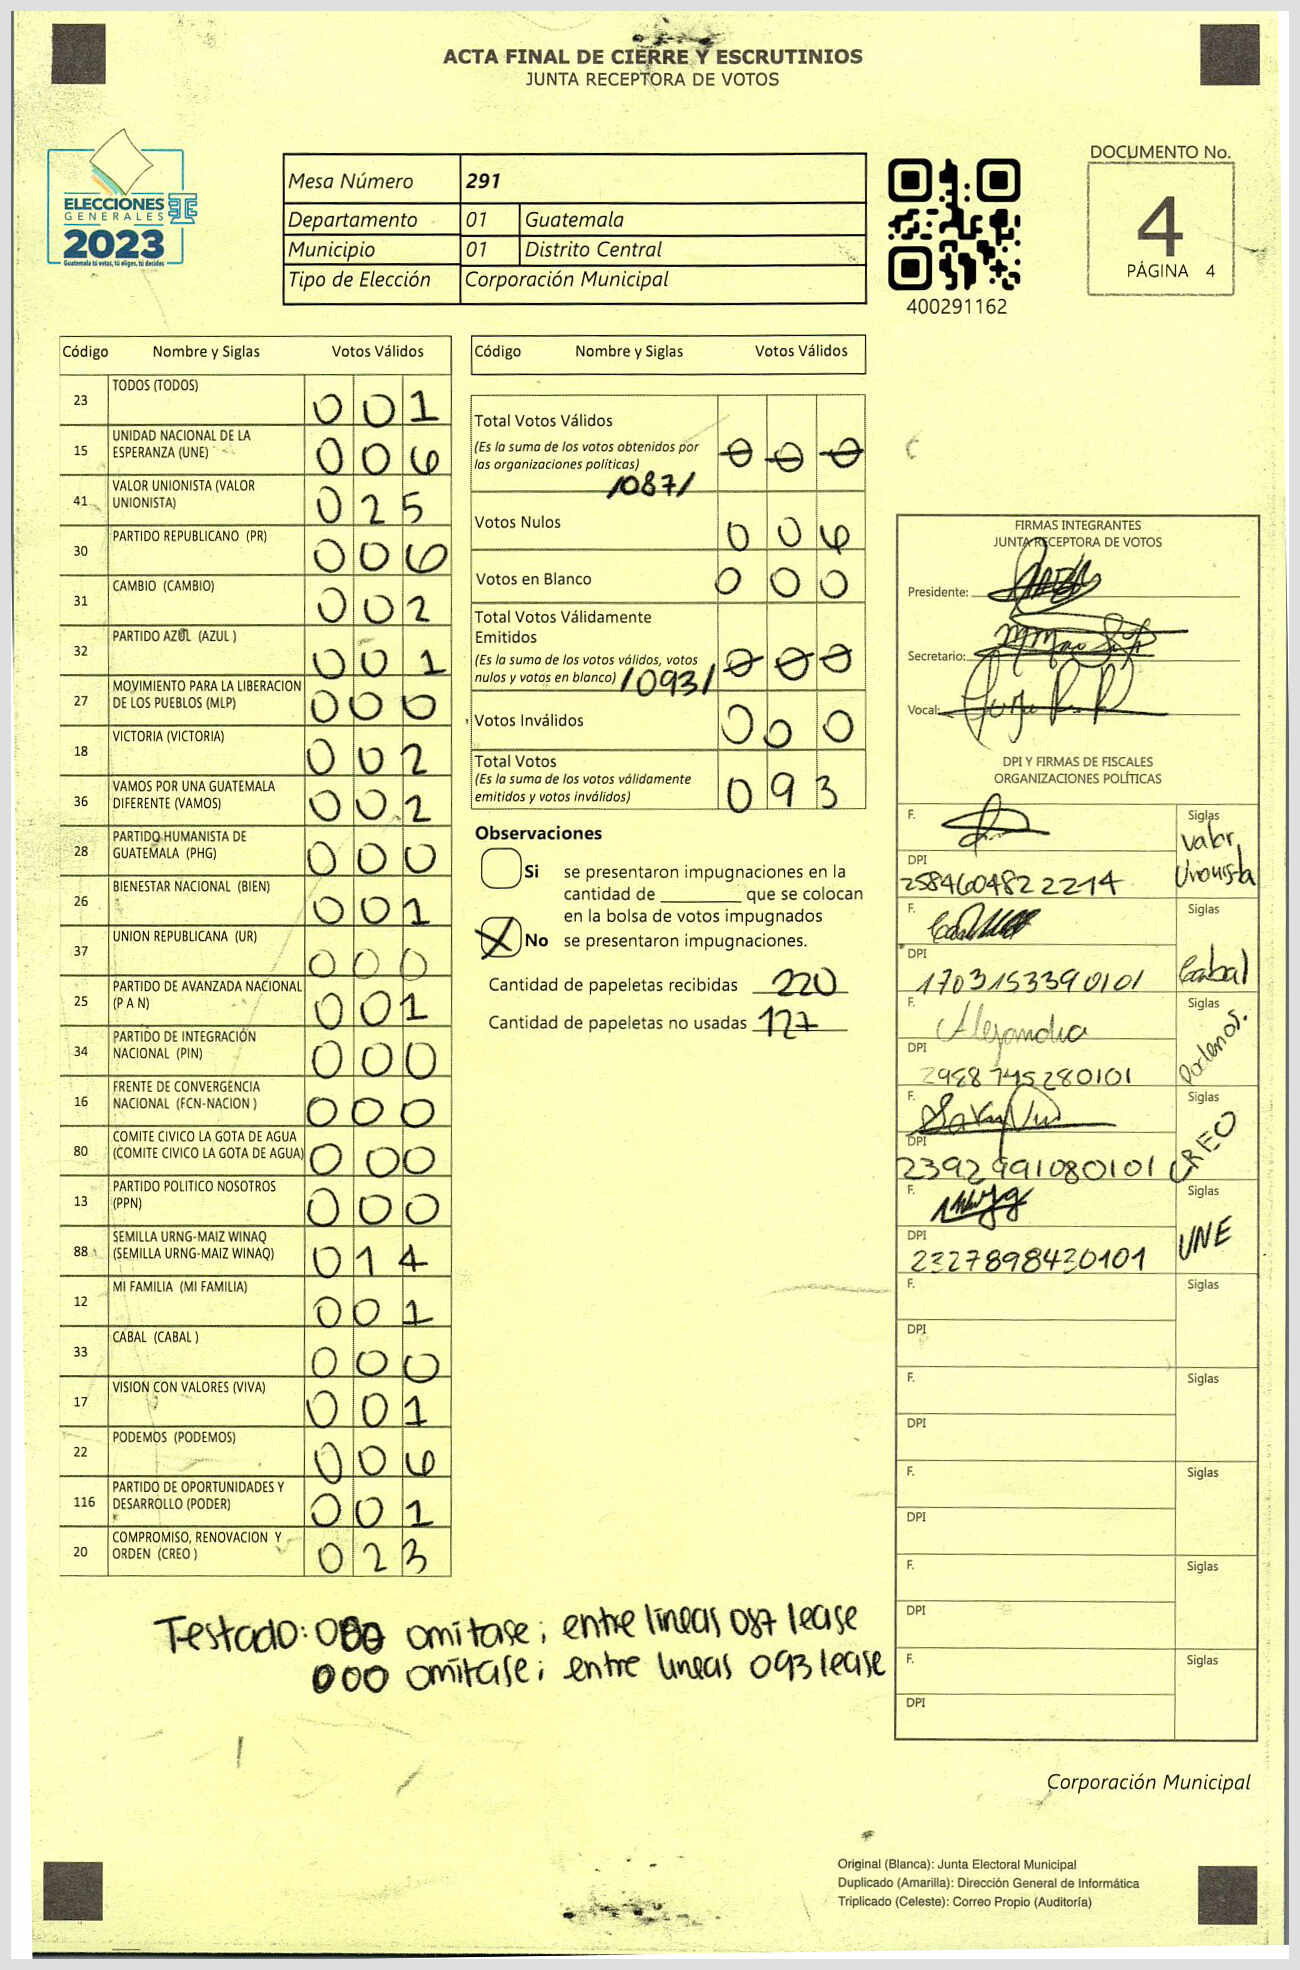 ACTA FINAL DE CIERRE Y ESCRUTINIOS
JUNTA RECEPTORA DE VOTOS
ELECCIONES
GENERALES
2023
Guatemala tú votas, tú eliges, tú decides
Mesa Número 291
Departamento 01 Guatemala
Municipio 01 Distrito Central
Tipo de Elección Corporación Municipal
400291162
DOCUMENTO No.
4
PÁGINA 4
Código Nombre y Siglas Votos Válidos
23 TODOS (TODOS) 0 0 1
15 UNIDAD NACIONAL DE LA
ESPERANZA (UNE) 0 0 6
41 VALOR UNIONISTA (VALOR
UNIONISTA) 0 2 5
30 PARTIDO REPUBLICANO (PR) 0 0 6
31 CAMBIO (CAMBIO) 0 0 2
32 PARTIDO AZUL (AZUL ) 0 0 1
27 MOVIMIENTO PARA LA LIBERACION
DE LOS PUEBLOS (MLP) 0 0 0
18 VICTORIA (VICTORIA) 0 0 2
36 VAMOS POR UNA GUATEMALA
DIFERENTE (VAMOS) 0 0 2
28 PARTIDO HUMANISTA DE
GUATEMALA (PHG) 0 0 0
26 BIENESTAR NACIONAL (BIEN) 0 0 1
37 UNION REPUBLICANA (UR) 0 0 0
25 PARTIDO DE AVANZADA NACIONAL
(P A N) 0 0 1
34 PARTIDO DE INTEGRACIÓN
NACIONAL (PIN) 0 0 0
16 FRENTE DE CONVERGENCIA
NACIONAL (FCN-NACION ) 0 0 0
80 COMITE CIVICO LA GOTA DE AGUA
(COMITE CIVICO LA GOTA DE AGUA) 0 0 0
13 PARTIDO POLITICO NOSOTROS
(PPN) 0 0 0
88 SEMILLA URNG-MAIZ WINAQ
(SEMILLA URNG-MAIZ WINAQ) 0 1 4
12 MI FAMILIA (MI FAMILIA) 0 0 1
33 CABAL (CABAL ) 0 0 0
17 VISION CON VALORES (VIVA) 0 0 1
22 PODEMOS (PODEMOS) 0 0 6
116 PARTIDO DE OPORTUNIDADES Y
DESARROLLO (PODER) 0 0 1
20 COMPROMISO, RENOVACION Y
ORDEN (CREO ) 0 2 3
Código Nombre y Siglas Votos Válidos
Total Votos Válidos
(Es la suma de los votos obtenidos por
las organizaciones políticas) 0 0 0
/087/
Votos Nulos 0 0 6
Votos en Blanco 0 0 0
Total Votos Válidamente
Emitidos
(Es la suma de los votos válidos, votos
nulos y votos en blanco) /093/ 0 0 0
Votos Inválidos 0 0 0
Total Votos
(Es la suma de los votos válidamente
emitidos y votos inválidos) 0 9 3
Observaciones
Si se presentaron impugnaciones en la
cantidad de ________ que se colocan
en la bolsa de votos impugnados
X No se presentaron impugnaciones.
Cantidad de papeletas recibidas 220
Cantidad de papeletas no usadas 127
FIRMAS INTEGRANTES
JUNTA RECEPTORA DE VOTOS
Presidente:
Secretario:
Vocal:
DPI Y FIRMAS DE FISCALES
ORGANIZACIONES POLÍTICAS
F. Siglas
Valor
Unionista
DPI
2584604822214
F. Siglas
Cabal
DPI
1703153390101
F. Alejandra Siglas
Podemos.
DPI
2988745280101
F. Siglas
CREO
DPI
2392991080101
F. Siglas
UNE
DPI
2327898430101
F. Siglas
DPI
F. Siglas
DPI
F. Siglas
DPI
F. Siglas
DPI
F. Siglas
DPI
Testado: 000 omitase; entre lineas 087 lease
000 omitase; entre lineas 093 lease
Corporación Municipal
Original (Blanca): Junta Electoral Municipal
Duplicado (Amarilla): Dirección General de Informática
Triplicado (Celeste): Correo Propio (Auditoría)